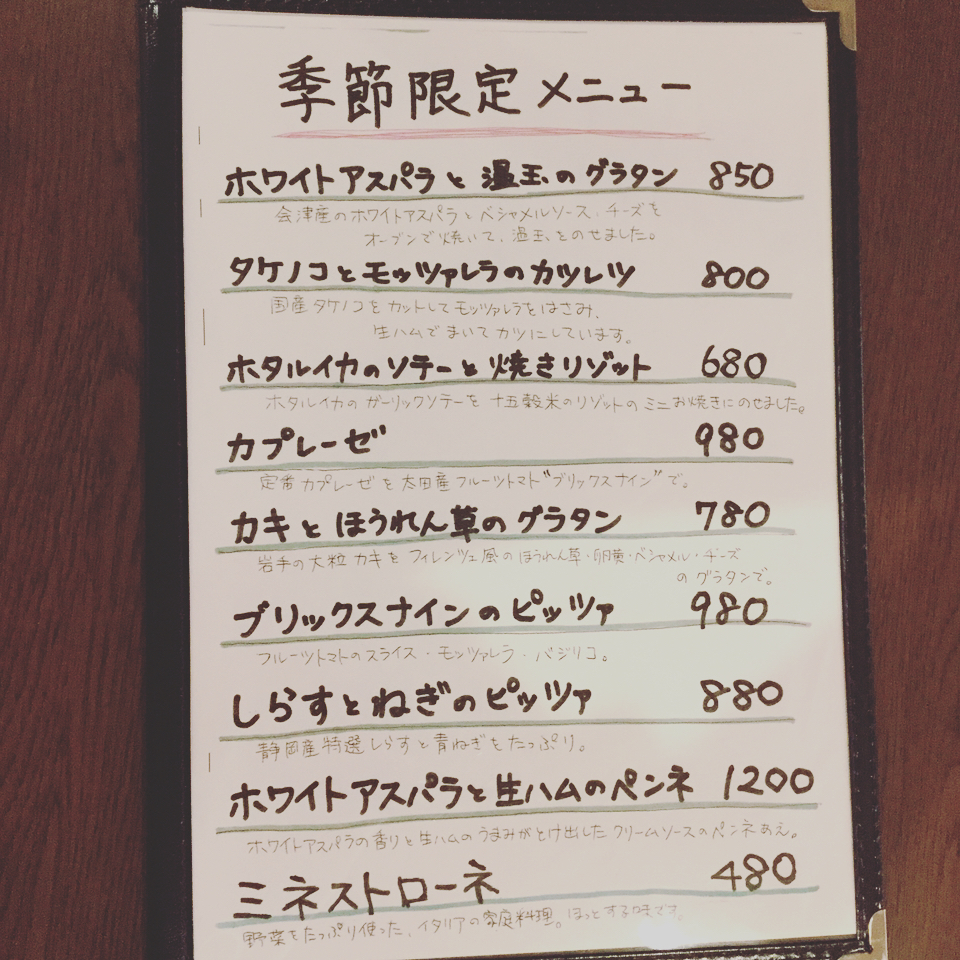 季節限定メニュー
ホワイトアスパラと温玉のグラタン 850
会津産のホワイトアスパラとベシャメルソース、チーズを
オーブンで焼いて、温玉をのせました。
タケノコとモッツァレラのカツレツ 800
国産タケノコをカットしてモッツァレラをはさみ、
生ハムでまいてカツにしています。
ホタルイカのソテーと焼きリゾット 680
ホタルイカのガーリックソテーを十五穀米のリゾットのミニお焼きにのせました。
カプレーゼ 980
定番カプレーゼを太田産フルーツトマト"ブリックスナイン"で。
カキとほうれん草のグラタン 780
岩手の大粒カキをフィレンツェ風のほうれん草・卵黄・ベシャメル・チーズ
のグラタンで。
ブリックスナインのピッツァ 980
フルーツトマトのスライス・モッツァレラ・バジリコ。
しらすとねぎのピッツァ 880
静岡産特選しらすと青ねぎをたっぷり。
ホワイトアスパラと生ハムのペンネ 1200
ホワイトアスパラの香りと生ハムのうまみがとけ出したクリームソースのペンネあえ。
ミネストローネ 480
野菜をたっぷり使った、イタリアの家庭料理。ほっとする味です。